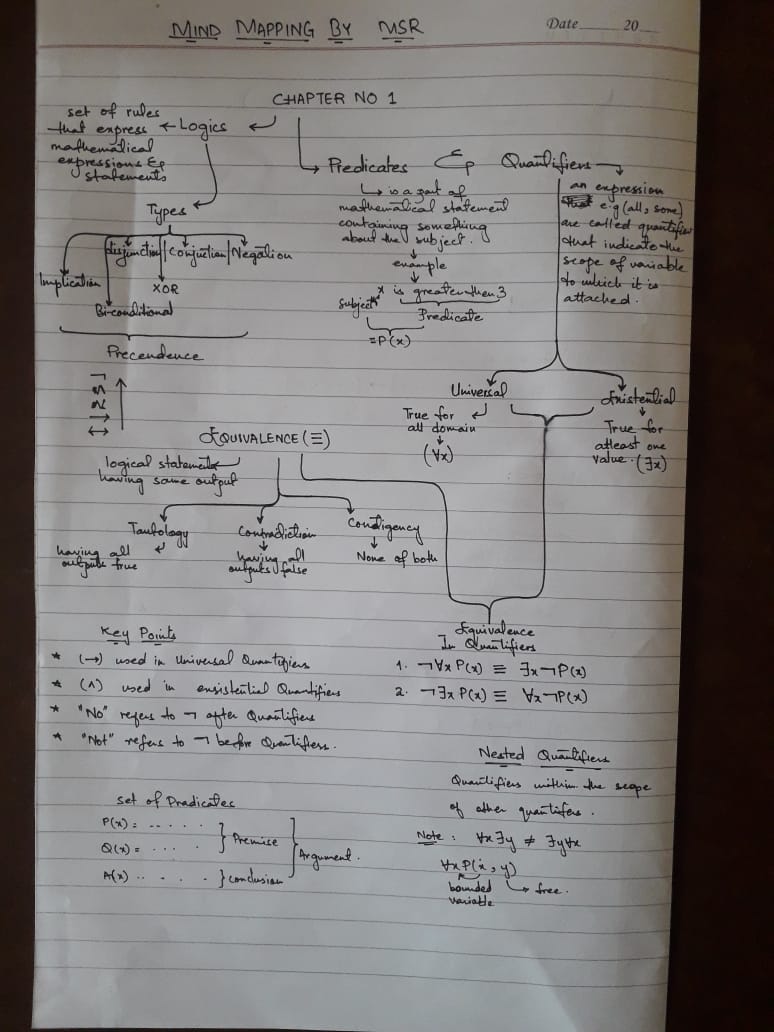 MIND MAPPING BY MSR
Date 20
CHAPTER NO 1
set of rules
that express ← Logics
mathematical
expressions &
statements
Predicates & Quantifiers
is a part of
mathematical statement
containing something
about the subject.
example
x is greater then 3
subject
Predicate
=P(x)
an expression
e.g (all, some)
are called quantifier
that indicate the
scope of variable
to which it is
attached.
Types
disjunction | Conjuction | Negation
Implication
XOR
Bi-conditional
Precendence
↔ → ∨ ∧ ¬
Universal
True for
all domain
(∀x)
Existential
True for
atleast one
value. (∃x)
EQUIVALENCE (≡)
logical statements
having same output
Tautology
having all
outputs true
Contradiction
having all
outputs false
Contigency
None of both
Equivalence
In Quantifiers
1. ¬∀x P(x) ≡ ∃x ¬P(x)
2. ¬∃x P(x) ≡ ∀x ¬P(x)
Key Points
* (→) used in Universal Quantifiers
* (∧) used in ensistential Quantifiers
* "No" refers to ¬ after Quantifiers
* "Not" refers to ¬ before Quantifiers.
Nested Quantifiers
Quantifiers within the scope
of other quantifers.
Note: ∀x∃y ≠ ∃y∀x
∀x P(x, y)
bounded
variable
free.
set of Pradicates
P(x) = .. . . .
Q(x) = . . . .
} Premise
A(x) .. . . . } conclusion
} Argument.